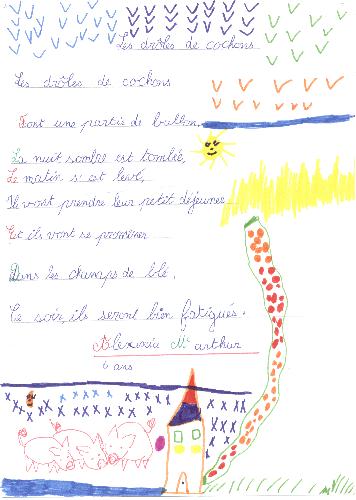 Les drôles de cochons
Les drôles de cochons
Font une partie de ballon,
La nuit sombre est tombée,
Le matin s'est levé,
Il vont prendre leur petit déjeuner
Et ils vont se promener
Dans les champs de blé.
Ce soir, ils seront bien fatigués.
Alexia Mc arthur
6 ans